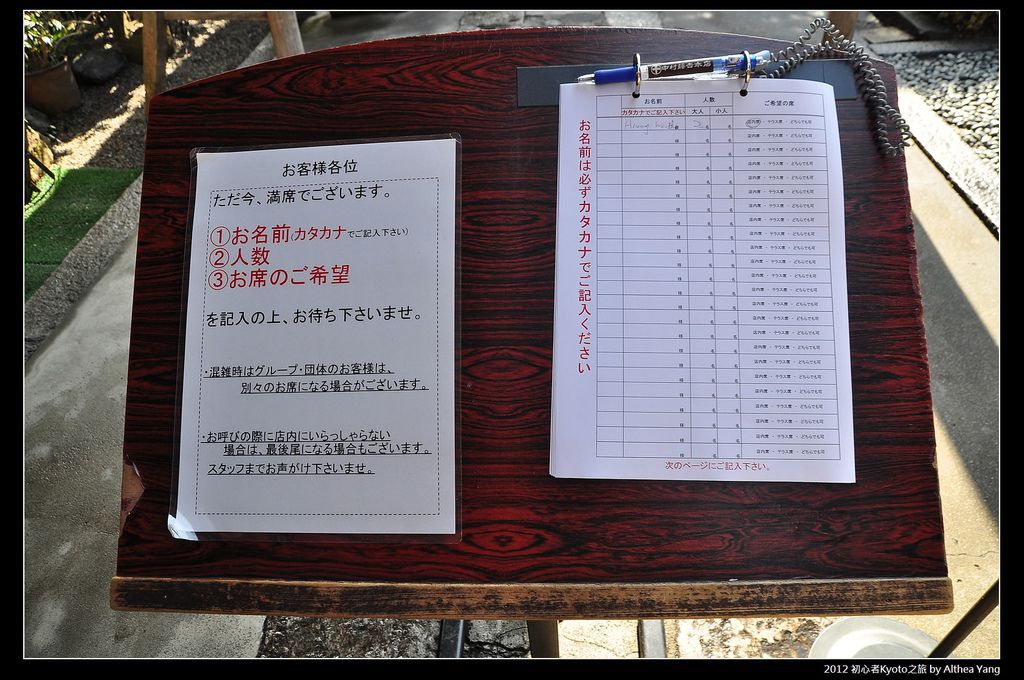 お客様各位
ただ今、満席でございます。
①お名前(カタカナでご記入下さい)
②人数
③お席のご希望
を記入の上、お待ち下さいませ。
・混雑時はグループ・団体のお客様は、
別々のお席になる場合がございます。
・お呼びの際に店内にいらっしゃらない
場合は、最後尾になる場合もございます。
スタッフまでお声がけ下さいませ。
中村藤吉本店
お名前 人数 ご希望の席
カタカナでご記入下さい 大人 小人
お名前は必ずカタカナでご記入ください
2 名 名 店内席 ・ テラス席 ・ どちらでも可
様 名 名 店内席 ・ テラス席 ・ どちらでも可
様 名 名 店内席 ・ テラス席 ・ どちらでも可
様 名 名 店内席 ・ テラス席 ・ どちらでも可
様 名 名 店内席 ・ テラス席 ・ どちらでも可
様 名 名 店内席 ・ テラス席 ・ どちらでも可
様 名 名 店内席 ・ テラス席 ・ どちらでも可
様 名 名 店内席 ・ テラス席 ・ どちらでも可
様 名 名 店内席 ・ テラス席 ・ どちらでも可
様 名 名 店内席 ・ テラス席 ・ どちらでも可
様 名 名 店内席 ・ テラス席 ・ どちらでも可
様 名 名 店内席 ・ テラス席 ・ どちらでも可
様 名 名 店内席 ・ テラス席 ・ どちらでも可
様 名 名 店内席 ・ テラス席 ・ どちらでも可
様 名 名 店内席 ・ テラス席 ・ どちらでも可
様 名 名 店内席 ・ テラス席 ・ どちらでも可
様 名 名 店内席 ・ テラス席 ・ どちらでも可
様 名 名 店内席 ・ テラス席 ・ どちらでも可
様 名 名 店内席 ・ テラス席 ・ どちらでも可
様 名 名 店内席 ・ テラス席 ・ どちらでも可
様 名 名 店内席 ・ テラス席 ・ どちらでも可
様 名 名 店内席 ・ テラス席 ・ どちらでも可
様 名 名 店内席 ・ テラス席 ・ どちらでも可
様 名 名 店内席 ・ テラス席 ・ どちらでも可
次のページにご記入下さい。
2012 初心者Kyoto之旅 by Althea Yang